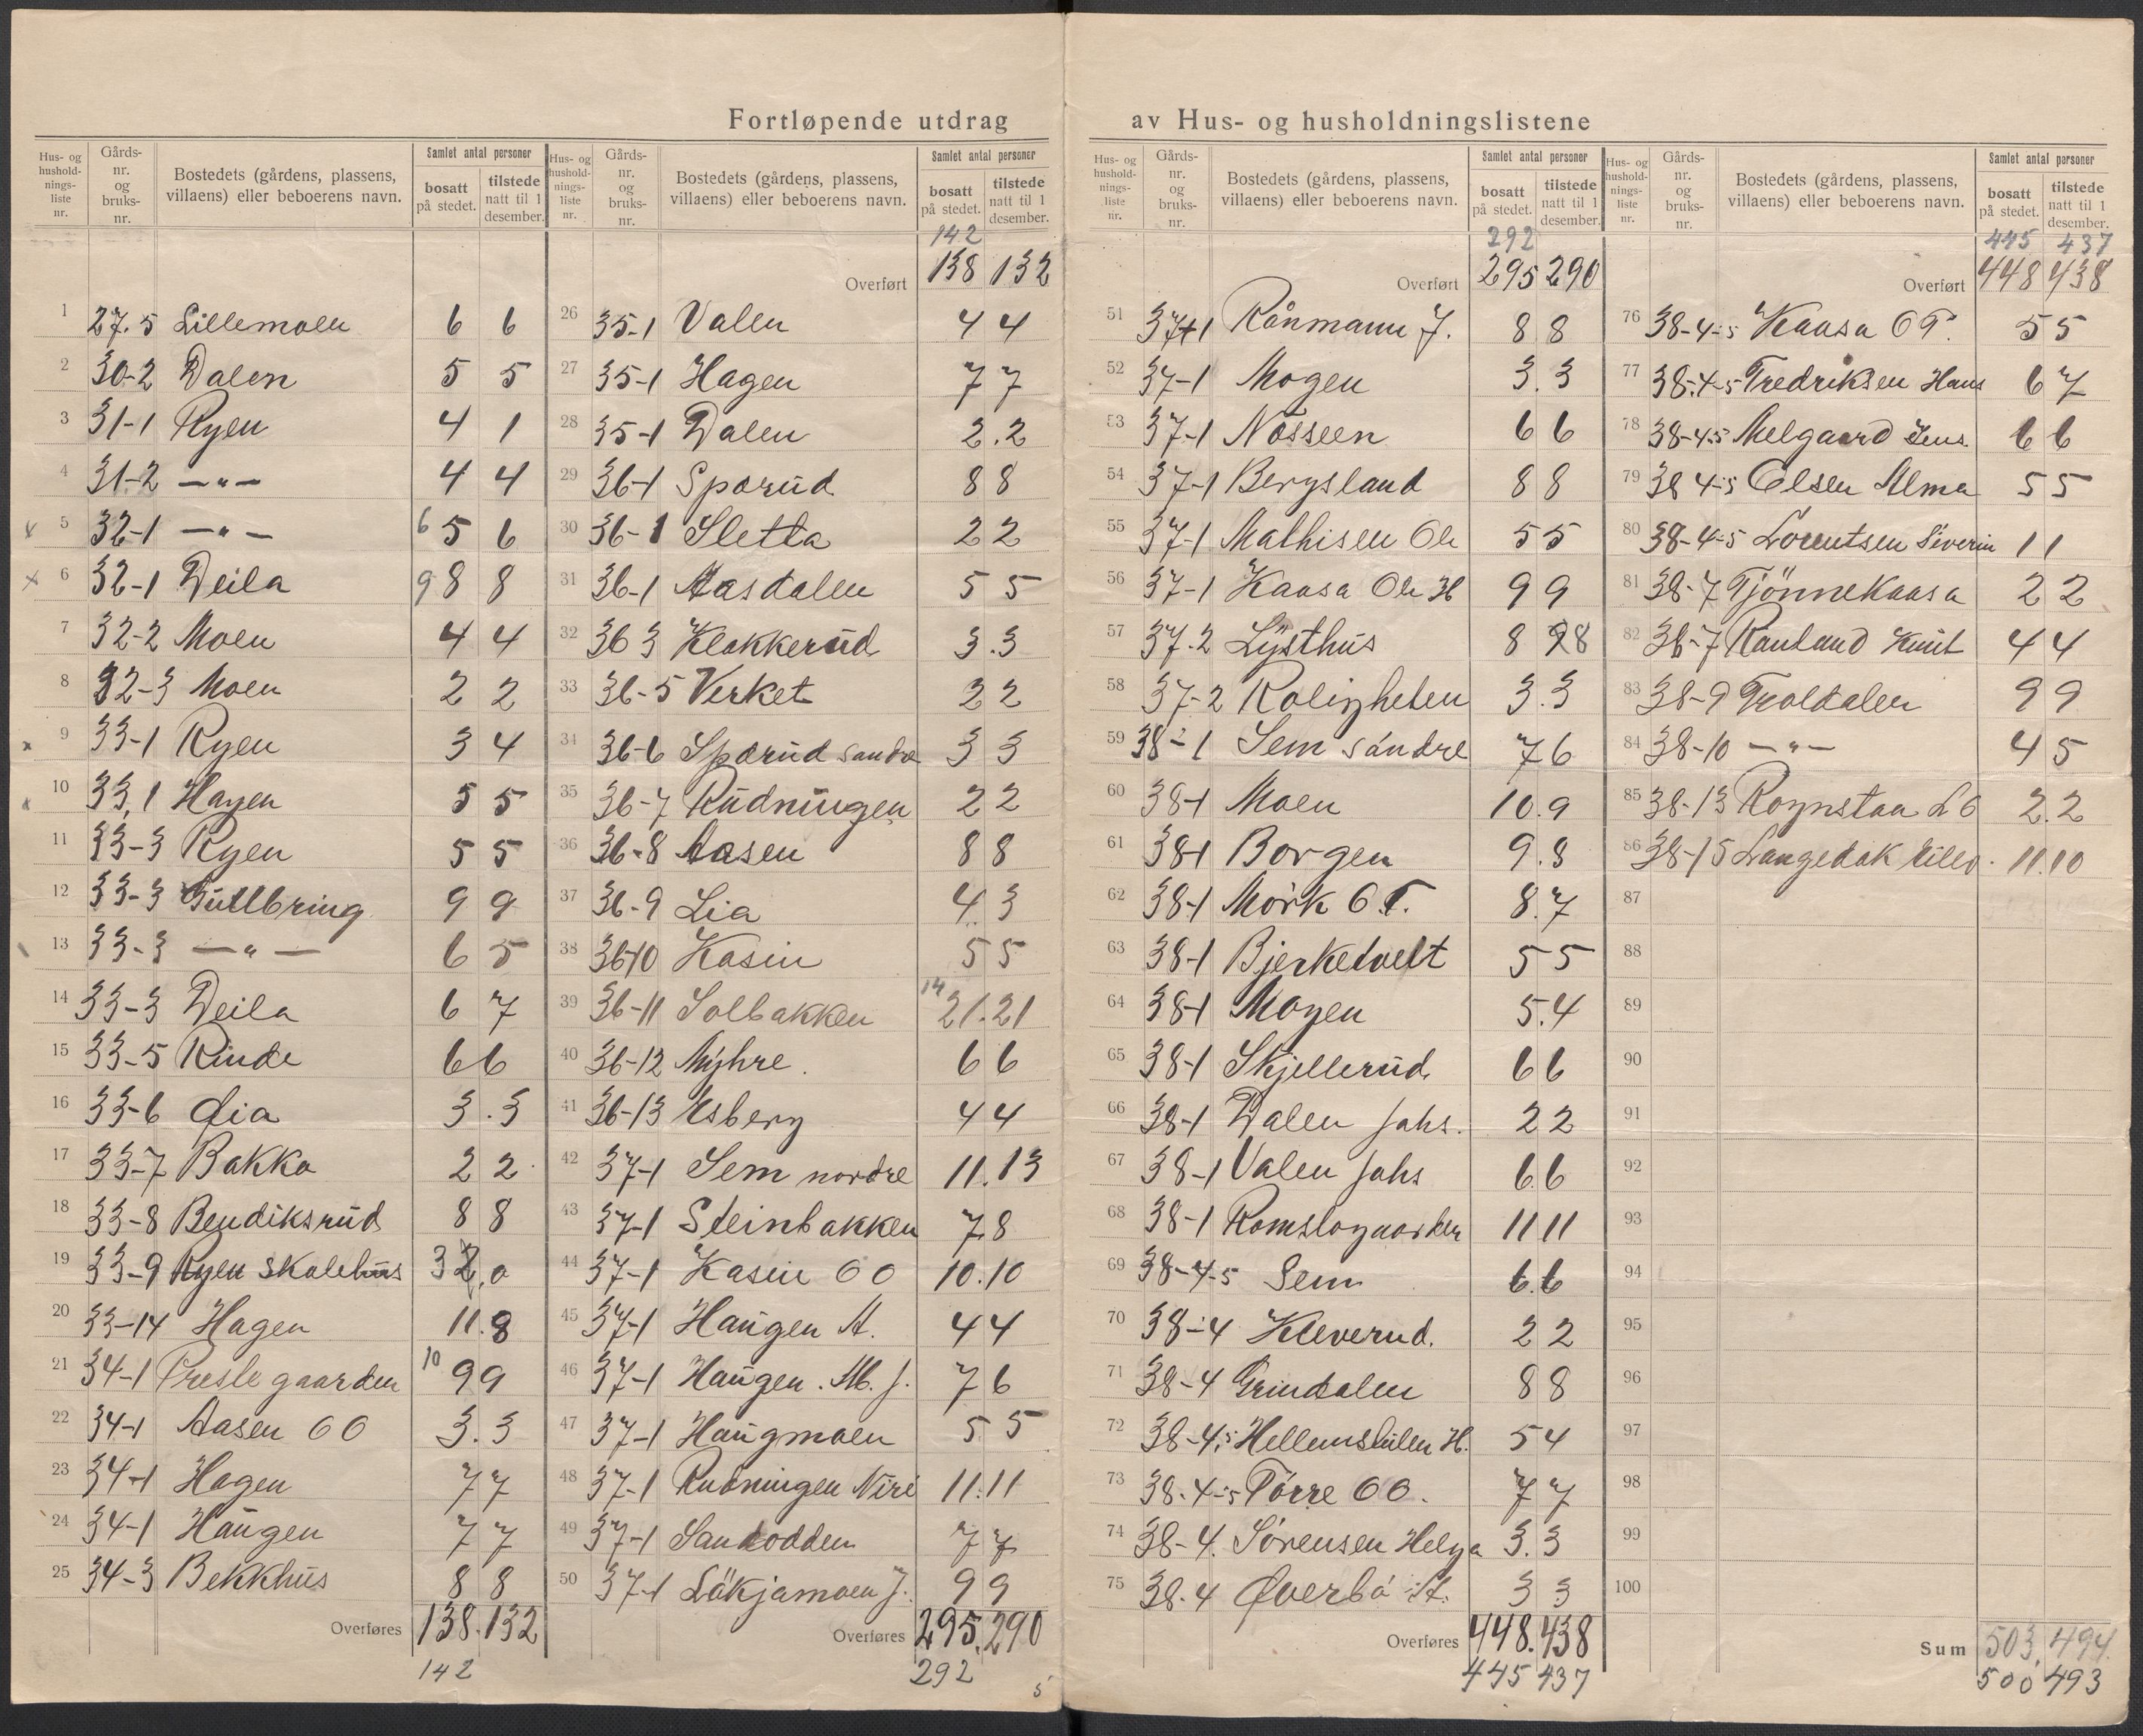 Fortløpende utdrag av Hus- og husholdningslistene
Hus- og husholdnings-liste nr. Gårds-nr. og bruks-nr. Bostedets (gårdens, plassens, villaens) eller beboerens navn. Samlet antal personer bosatt på stedet. tilstede natt til 1 desember.
1 27.5 Lillemoen 6 6
2 30-2 Dalen 5 5
3 31-1 Ryen 4 1
4 31-2 —"— 4 4
x 5 32-1 —"— 6 5 6
x 6 32-1 Deila 9 8 8
7 32-2 Moen 4 4
8 32-3 Moen 2 2
x 9 33-1 Ryen 3 4
x 10 33,1 Hagen 5 5
11 33-3 Ryen 5 5
12 33-3 Gullbring 9 9
13 33-3 —"— 6 5
14 33-3 Deila 6 7
15 33-5 Rinde 6 6
16 33-6 Lia 3.3
17 33-7 Bakka 2 2
18 33-8 Bendiksrud 8 8
19 33-9 Ryen skolehus 3 2,0
20 33-14 Hagen 11.8
21 34-1 Prestegaarden 10 9 9
22 34-1 Aasen O O 3.3
23 34-1 Hagen 7 7
24 34-1 Haugen 7 7
25 34-3 Bekkhus 8 8
Overføres 138.132
142
Hus- og husholdnings-liste nr. Gårds-nr. og bruks-nr. Bostedets (gårdens, plassens, villaens) eller beboerens navn. Samlet antal personer bosatt på stedet. tilstede natt til 1 desember.
142
Overført 138 132
26 35-1 Valen 4 4
27 35-1 Hagen 7 7
28 35-1 Dalen 2.2
29 36-1 Sporud 8 8
30 36-1 Sletta 2 2
31 36-1 Aasdalen 5 5
32 36 3 Klokkerud 3.3
33 36-5 Verket 2 2
34 36-6 Sporud søndre 3 3
35 36-7 Rudningen 2 2
36 36-8 Aasen 8 8
37 36-9 Lia 4 3
38 36-10 Kasin 5 5
39 36-11 Solbakken 14 21.21
40 36-12 Myhre. 6 6
41 36-13 Esberg 4 4
42 37-1 Sem nordre 11.13
43 37-1 Steinbakken 7 8
44 37-1 Kasin O O 10.10
45 37-1 Haugen A. 4 4
46 37-1 Haugen. M. J. 7 6
47 37-1 Haugmoen 5 5
48 37-1 Rudningen Niri 11.11
49 37-1 Sandodden 7 7
50 37-1 Løkjamoen J. 9 9
Overføres 295.290
292
5
Hus- og husholdnings-liste nr. Gårds-nr. og bruks-nr. Bostedets (gårdens, plassens, villaens) eller beboerens navn. Samlet antal personer bosatt på stedet. tilstede natt til 1 desember.
292
Overført 295 290
51 37-1 Rånmann J. 8 8
52 37-1 Mogen 3.3
53 37-1 Nösseen 6 6
54 37-1 Bergsland 8 8
55 37-1 Mathisen Ole 5 5
56 37-1 Kaasa Ole H 9 9
57 37.2 Lysthus 8 9 8
58 37-2 Roligheten 3.3
59 38-1 Sem söndre 7 6
60 38-1 Moen 10.9
61 38-1 Borgen 9.8
62 38-1 Mörk O.T. 8.7
63 38-1 Bjerketvelt 5 5
64 38-1 Mogen 5.4
65 38-1 Skjellerud. 6 6
66 38-1 Dalen Johs. 2 2
67 38-1 Valen Johs 6.6
68 38-1 Romslogaarden 11 11
69 38-4-5 Sem 6.6
70 38-4 Kleverud. 2 2
71 38-4 Grindalen 8 8
72 38-4.5 H. 5 4
73 38.4-5 Torre O O. 7 7
74 38-4. Sørensen Helga 3.3
75 38.4 Øverbö A. 3 3
Overføres 448.438
445 437
Hus- og husholdnings-liste nr. Gårds-nr. og bruks-nr. Bostedets (gårdens, plassens, villaens) eller beboerens navn. Samlet antal personer bosatt på stedet. tilstede natt til 1 desember.
445 437
Overført 448 438
76 38-4-5 Kaasa O T. 5 5
77 38-4-5 Fredriksen Hans 6 7
78 38-4-5 Melgaard Jens. 6 6
79 38 4-5 Olsen Alma 5 5
80 38-4-5 Lorentsen Siverin 1 1
81 38-7 Tjönnekaasa 2 2
82 38-7 Rauland Knut 4 4
83 38-9 Troldalen 9 9
84 38-10 —"— 4 5
85 38-13 2.2
86 38-15 Langedok 11.10
87
88
89
90
91
92
93
94
95
96
97
98
99
100
Sum 503,494.
500 493